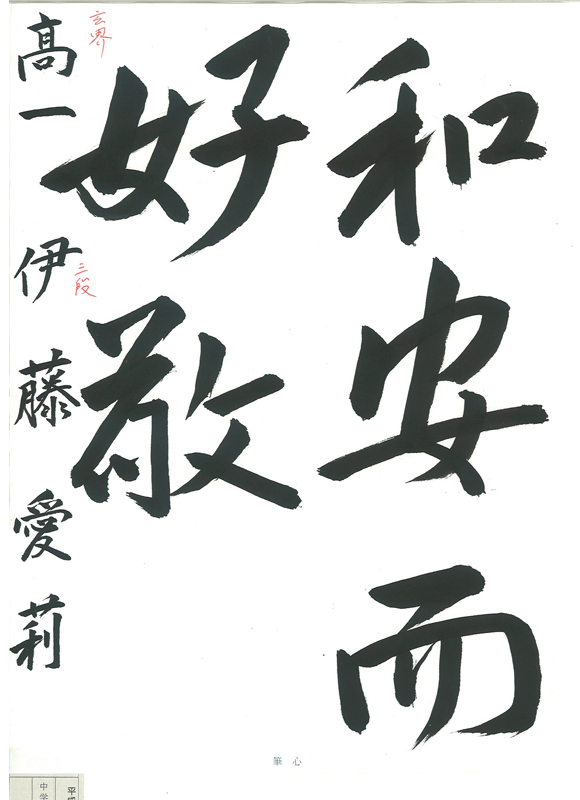 和安而
好敬
玄界
高一 伊藤愛莉
三段
心筆
平成
中学